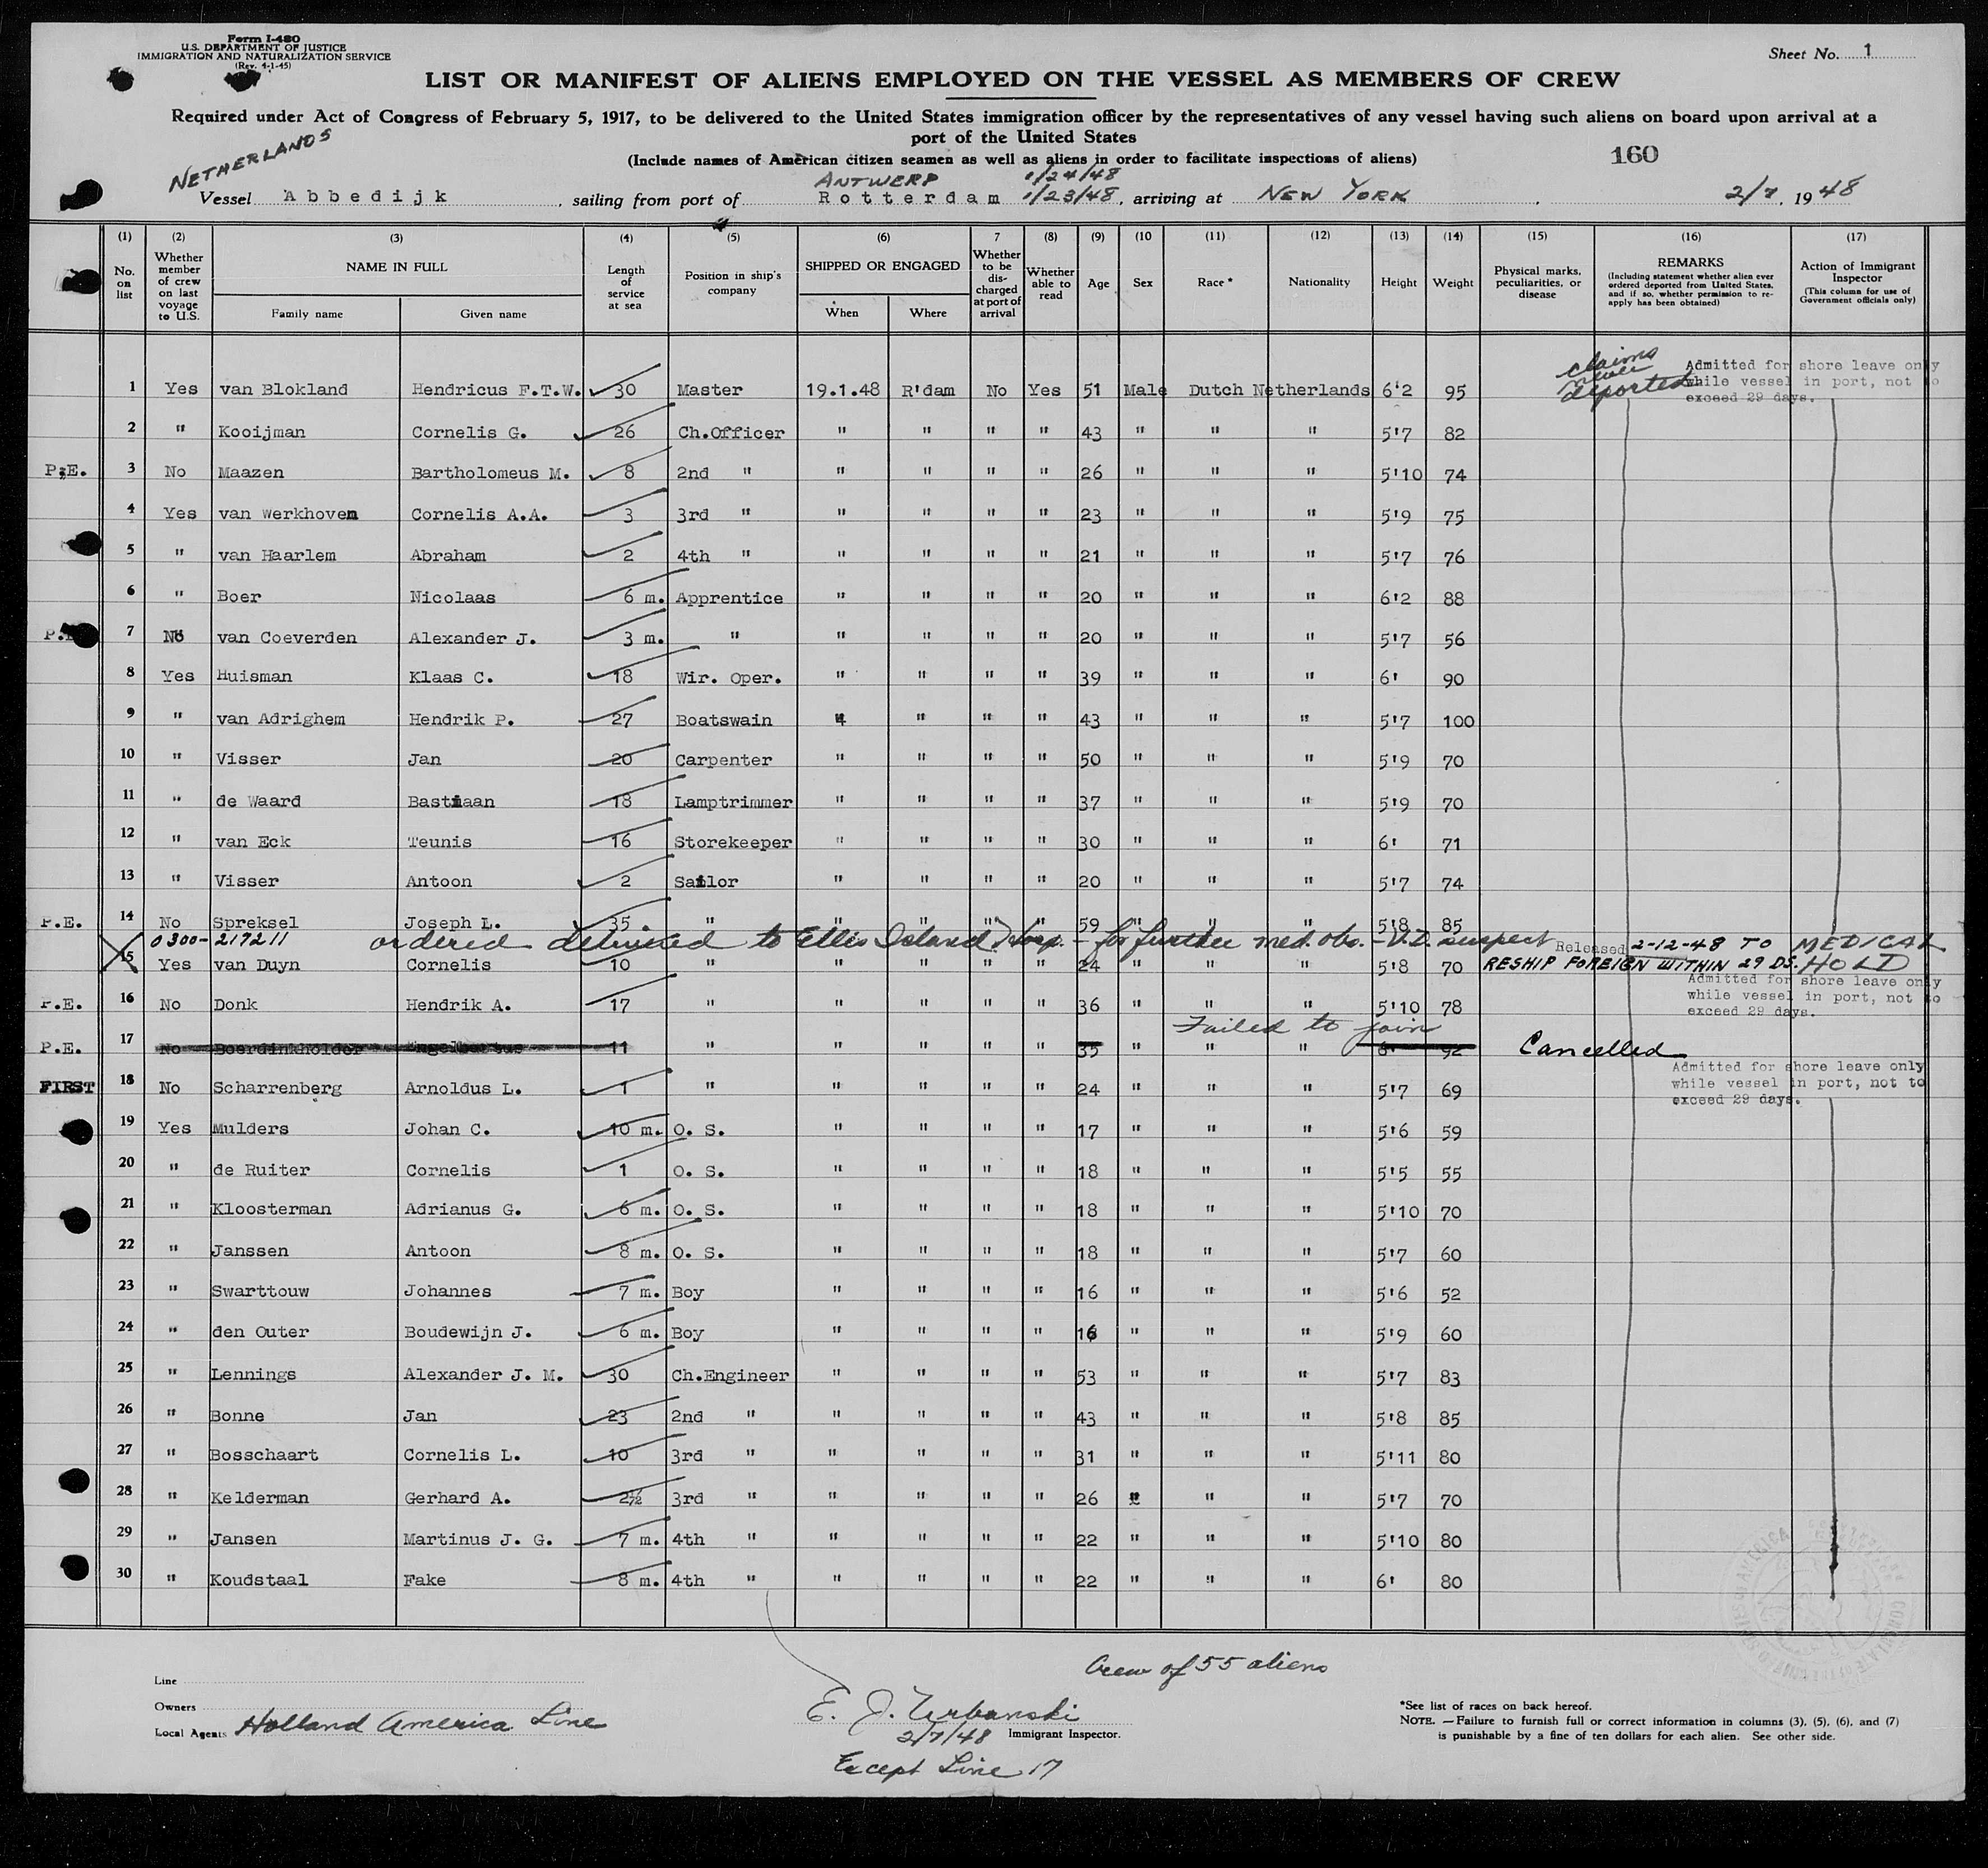 Form I-480
U.S. DEPARTMENT OF JUSTICE
IMMIGRATION AND NATURALIZATION SERVICE
(Rev. 4-1-45)
Sheet No. 1
LIST OR MANIFEST OF ALIENS EMPLOYED ON THE VESSEL AS MEMBERS OF CREW
Required under Act of Congress of February 5, 1917, to be delivered to the United States immigration officer by the representatives of any vessel having such aliens on board upon arrival at a
port of the United States
(Include names of American citizen seamen as well as aliens in order to facilitate inspections of aliens)
160
NETHERLANDS
ANTWERP 1/24/48
Vessel Abbedijk, sailing from port of Rotterdam 1/23/48, arriving at NEW YORK, 2/7, 1948
(1) (2) (3) (4) (5) (6) 7 (8) (9) (10 (11) (12) (13) (14) (15) (16) (17)
No. on list
Whether member of crew on last voyage to U.S.
NAME IN FULL
Family name Given name
Length of service at sea
Position in ship's company
SHIPPED OR ENGAGED
When Where
Whether to be discharged at port of arrival
Whether able to read
Age Sex Race * Nationality Height Weight
Physical marks, peculiarities, or disease
REMARKS
(Including statement whether alien ever ordered deported from United States, and if so, whether permission to re-apply has been obtained)
Action of Immigrant Inspector
(This column for use of Government officials only)
claims never deported
Admitted for shore leave only
while vessel in port, not to
exceed 29 days.
1 Yes van Blokland Hendricus F.T.W. 30 Master 19.1.48 R'dam No Yes 51 Male Dutch Netherlands 6'2 95
2 " Kooijman Cornelis G. 26 Ch.Officer " " " " 43 " " " 5'7 82
P.E. 3 No Maazen Bartholomeus M. 8 2nd " " " " " 26 " " " 5'10 74
4 Yes van Werkhoven Cornelis A.A. 3 3rd " " " " " 23 " " " 5'9 75
5 " van Haarlem Abraham 2 4th " " " " " 21 " " " 5'7 76
6 " Boer Nicolaas 6 m. Apprentice " " " " 20 " " " 6'2 88
7 No van Coeverden Alexander J. 3 m. " " " " " 20 " " " 5'7 56
8 Yes Huisman Klaas C. 18 Wir. Oper. " " " " 39 " " " 6' 90
9 " van Adrighem Hendrik P. 27 Boatswain " " " " 43 " " " 5'7 100
10 " Visser Jan 20 Carpenter " " " " 50 " " " 5'9 70
11 " de Waard Bastiaan 18 Lamptrimmer " " " " 37 " " " 5'9 70
12 " van Eck Teunis 16 Storekeeper " " " " 30 " " " 6' 71
13 " Visser Antoon 2 Sailor " " " " 20 " " " 5'7 74
P.E. 14 No Spreksel Joseph L. 35 " " " " " 59 " " " 5'8 85
0300-217211 ordered detained to Ellis Island Hosp. - for further med. obs. - V.D. suspect Released 2-12-48 TO MEDICAL
15 Yes van Duyn Cornelis 10 " " " " " 24 " " " 5'8 70 RESHIP FOREIGN WITHIN 29 DS. HOLD
Admitted for shore leave only
while vessel in port, not to
exceed 29 days.
P.E. 16 No Donk Hendrik A. 17 " " " " " 36 " " " 5'10 78
Failed to join
P.E. 17 No 11 " " " " " 35 " " " 6' 92 Cancelled
Admitted for shore leave only
while vessel in port, not to
exceed 29 days.
FIRST 18 No Scharrenberg Arnoldus L. 1 " " " " " 24 " " " 5'7 69
19 Yes Mulders Johan C. 10 m. O. S. " " " " 17 " " " 5'6 59
20 " de Ruiter Cornelis 1 O. S. " " " " 18 " " " 5'5 55
21 " Kloosterman Adrianus G. 6 m. O. S. " " " " 18 " " " 5'10 70
22 " Janssen Antoon 8 m. O. S. " " " " 18 " " " 5'7 60
23 " Swarttouw Johannes 7 m. Boy " " " " 16 " " " 5'6 52
24 " den Outer Boudewijn J. 6 m. Boy " " " " 16 " " " 5'9 60
25 " Lennings Alexander J. M. 30 Ch.Engineer " " " " 53 " " " 5'7 83
26 " Bonne Jan 23 2nd " " " " " 43 " " " 5'8 85
27 " Bosschaart Cornelis L. 10 3rd " " " " " 31 " " " 5'11 80
28 " Kelderman Gerhard A. 2½ 3rd " " " " " 26 " " " 5'7 70
29 " Jansen Martinus J. G. 7 m. 4th " " " " " 22 " " " 5'10 80
30 " Koudstaal Fake 8 m. 4th " " " " " 22 " " " 6' 80
Crew of 55 aliens
Line
Owners
Local Agents Holland America Line
E. J. Urbanski
2/7/48 Immigrant Inspector.
Except Line 17
*See list of races on back hereof.
NOTE.—Failure to furnish full or correct information in columns (3), (5), (6), and (7)
is punishable by a fine of ten dollars for each alien. See other side.